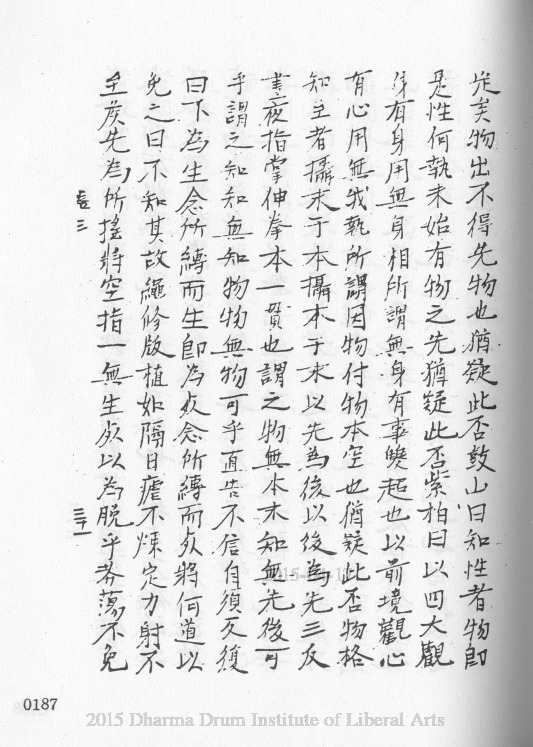 先矣物出不得先物也猶疑此否鼓山曰知性者物即
是性何執未始有物之先猶疑此否紫柏曰以四大觀
身有身用無身相所謂無身有事雙起也以前境觀心
有心用無我執所謂因物付物本空也猶疑此否物格
知至者攝末于本攝本于末以先為後以後為先三反
晝夜指掌伸拳本一貫也謂之物無本末知無先後可
乎謂之知知無知物物無物可乎直告不信自須反復
曰下為生念所縛而生即為死念所縛而死將何道以
免之曰不知其故繩修版植如隔日瘧不煉定力射不
至侯先為所搖將空指一無生死以為脫乎莽蕩不免
卷三
三十一
0187
2015 Dharma Drum Institute of Liberal Arts